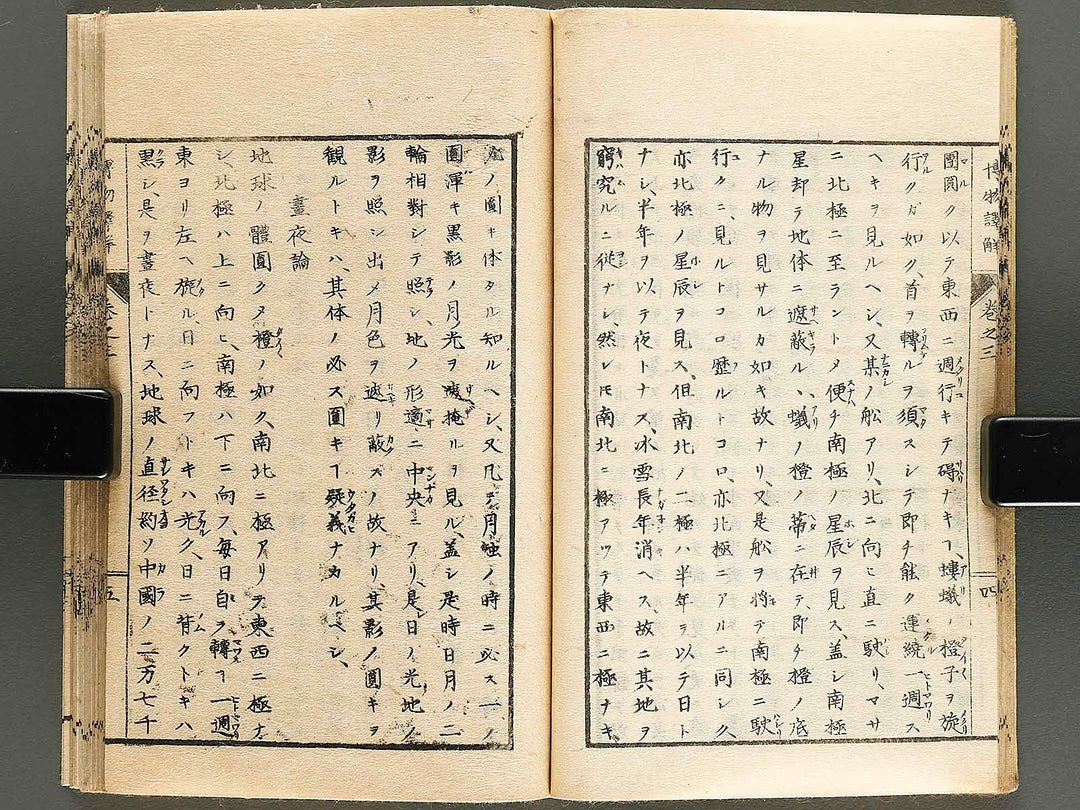 博物譯解 卷之三 四
團圓ク以テ東西ニ週行キテ碍ナキヿ、螻蟻ノ橙子ヲ旋
行クガ如ク、首ヲ轉ルヲ須スシテ即チ能ク連繞一週ス
ヘキヲ見ルヘシ、又某ノ舩アリ、北ニ向ヒ直ニ駛リ、マサ
ニ北極ニ至ラントメ便チ南極ノ星辰ヲ見ス、盖シ南極
星却テ地体ニ遮蔽ル、蟻ノ橙ノ蒂ニ在テ、即チ橙ノ底
ナル物ヲ見サルカ如キ故ナリ、又是舩ヲ將テ南極ニ駛
行クニ、見ルトコロ歴ルトコロ、亦北極ニアルニ同シク
亦北極ノ星辰ヲ見ス、但南北ノ二極ハ半年ヲ以テ日ト
ナシ、半年ヲ以テ夜トナス、冰雪長年消ヘス、故ニ其地ヲ
窮究ルニ従ナシ、然レ𪜈南北ニ極アツテ東西ニ極ナキ
ノ圓キ体タル知ルヘシ、又凡ソ月蝕ノ時ニ必ス一ノ
圓渾キ黒影ノ月光ヲ渡掩ルヲ見ル、盖シ是時日月ノ二
輪相對シテ照シ、地ノ形適ニ中央ニアリ、是日ノ光地ノ
影ヲ照シ出メ月色ヲ遮リ蔽ズノ故ナリ、其影ノ圓キヲ
観ルトキハ、其体ノ必ス圓キヿ疑義ナカルヘシ、
晝夜論
地球ノ體圓クメ橙ノ如ク、南北ニ極アリテ東西ニ極ナ
シ、北極ハ上ニ向ヒ、南極ハ下ニ向フ、毎日自ラ轉ヿ一週
東ヨリ左ヘ旋ル、日ニ向フトキハ光ク、日ニ背クトキハ
黒シ、是ヲ晝夜トナス、地球ノ直径約ソ中國ノ二万七千
卷之三 五